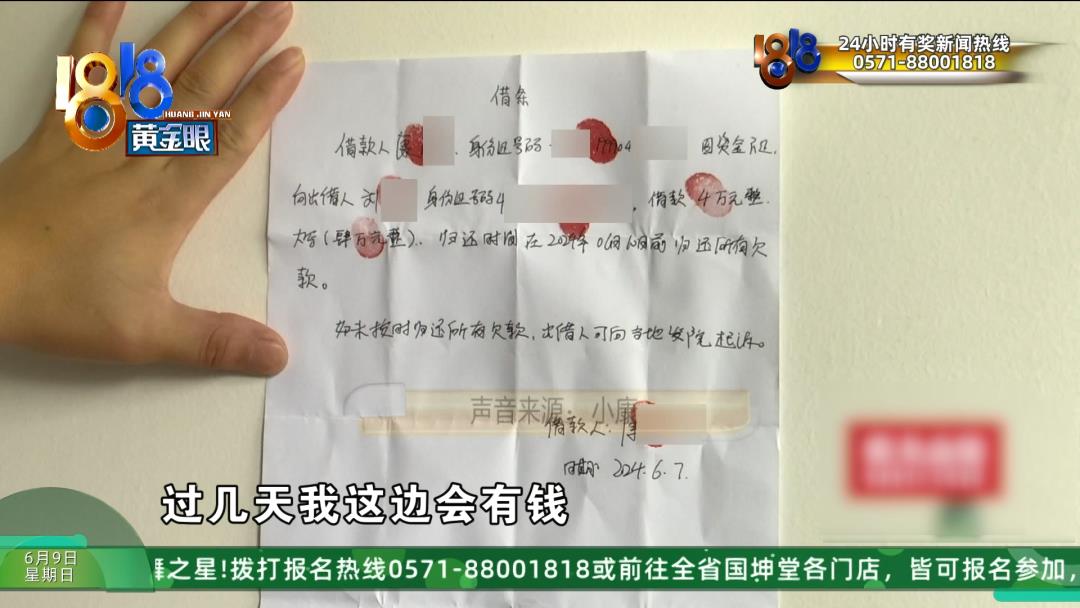 1818
HUANG JIN YAN
黄金眼
1818
24小时有奖新闻热线
0571-88001818
借条
借款人康 身份证号码 04 因资金
向出借人刘 身份证号码4 ,借款4万元整.
大写(肆万元整). 归还时间在2024年06月 日前归还所有欠
款。
如未按时归还所有欠款,出借人可向当地法院起诉。
声音来源:小康
借款人:康
日期: 2024.6.7.
过几天我这边会有钱
6月9日
星期日
舞之星!拨打报名热线0571-88001818或前往全省国坤堂各门店,皆可报名参加,